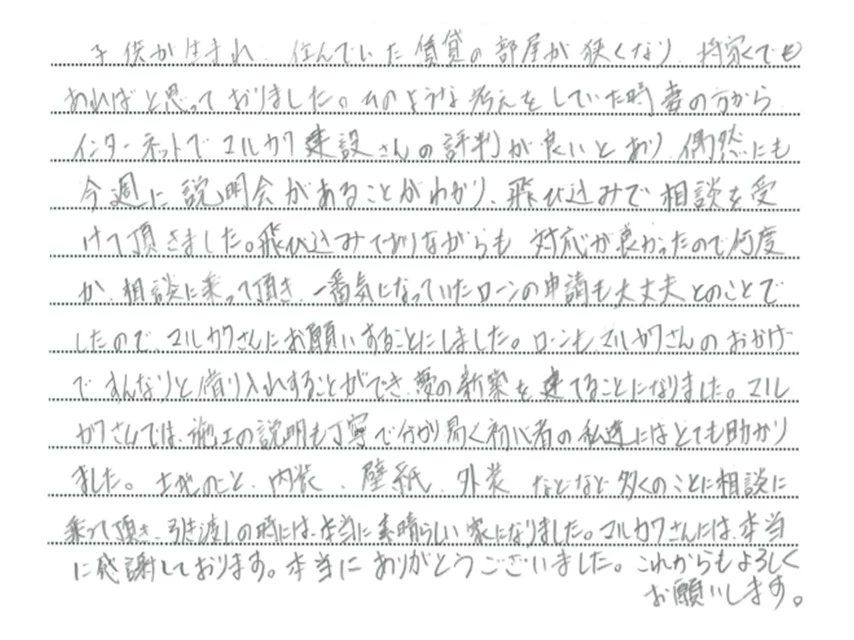 子供が生まれ、住んでいた賃貸の部屋が狭くなり、持家でも
あればと思っておりました。そのような考えをしていた時妻の方から
インターネットでマルカワ建設さんの評判が良いとあり、偶然にも
今週に説明会があることがわかり、飛び込みで相談を受
けて頂きました。飛び込みでありながらも対応が良かったので何度
か、相談に乗って頂き、一番気になっていたローンの申請も大丈夫とのことで
したので、マルカワさんにお願いすることにしました。ローンもマルカワさんのおかげ
ですんなりと借り入れすることができ、夢の新築を建てることになりました。マル
カワさんでは、施工の説明も丁寧で分かり易く初心者の私達にはとても助かり
ました。土地のこと、内装、壁紙、外装などなど多くのことに相談に
乗って頂き、引き渡しの時には、本当に素晴らしい家になりました。マルカワさんには、本当
に感謝しております。本当にありがとうございました。これからもよろしく
お願いします。